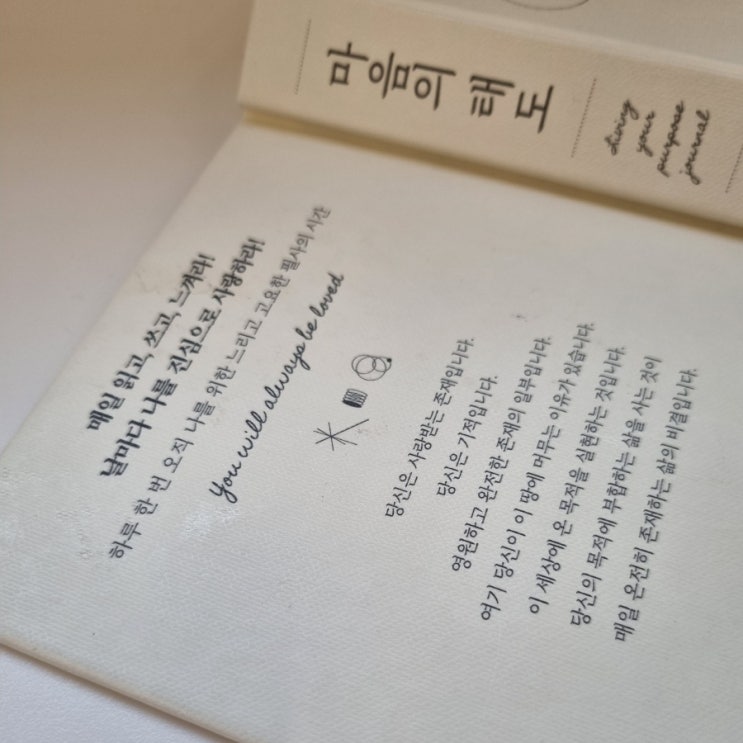 마음의 태도
living
your
purpose
journal
매일 읽고, 쓰고, 느껴라!
날마다 나를 진심으로 사랑하라!
하루 한 번 오직 나를 위한 느리고 고요한 필사의 시간
You will always be loved
당신은 사랑받는 존재입니다.
당신은 기적입니다.
영원하고 완전한 존재의 일부입니다.
여기 당신이 이 땅에 머무는 이유가 있습니다.
이 세상에 온 목적을 실현하는 것입니다.
당신의 목적에 부합하는 삶을 사는 것이
매일 온전히 존재하는 삶의 비결입니다.